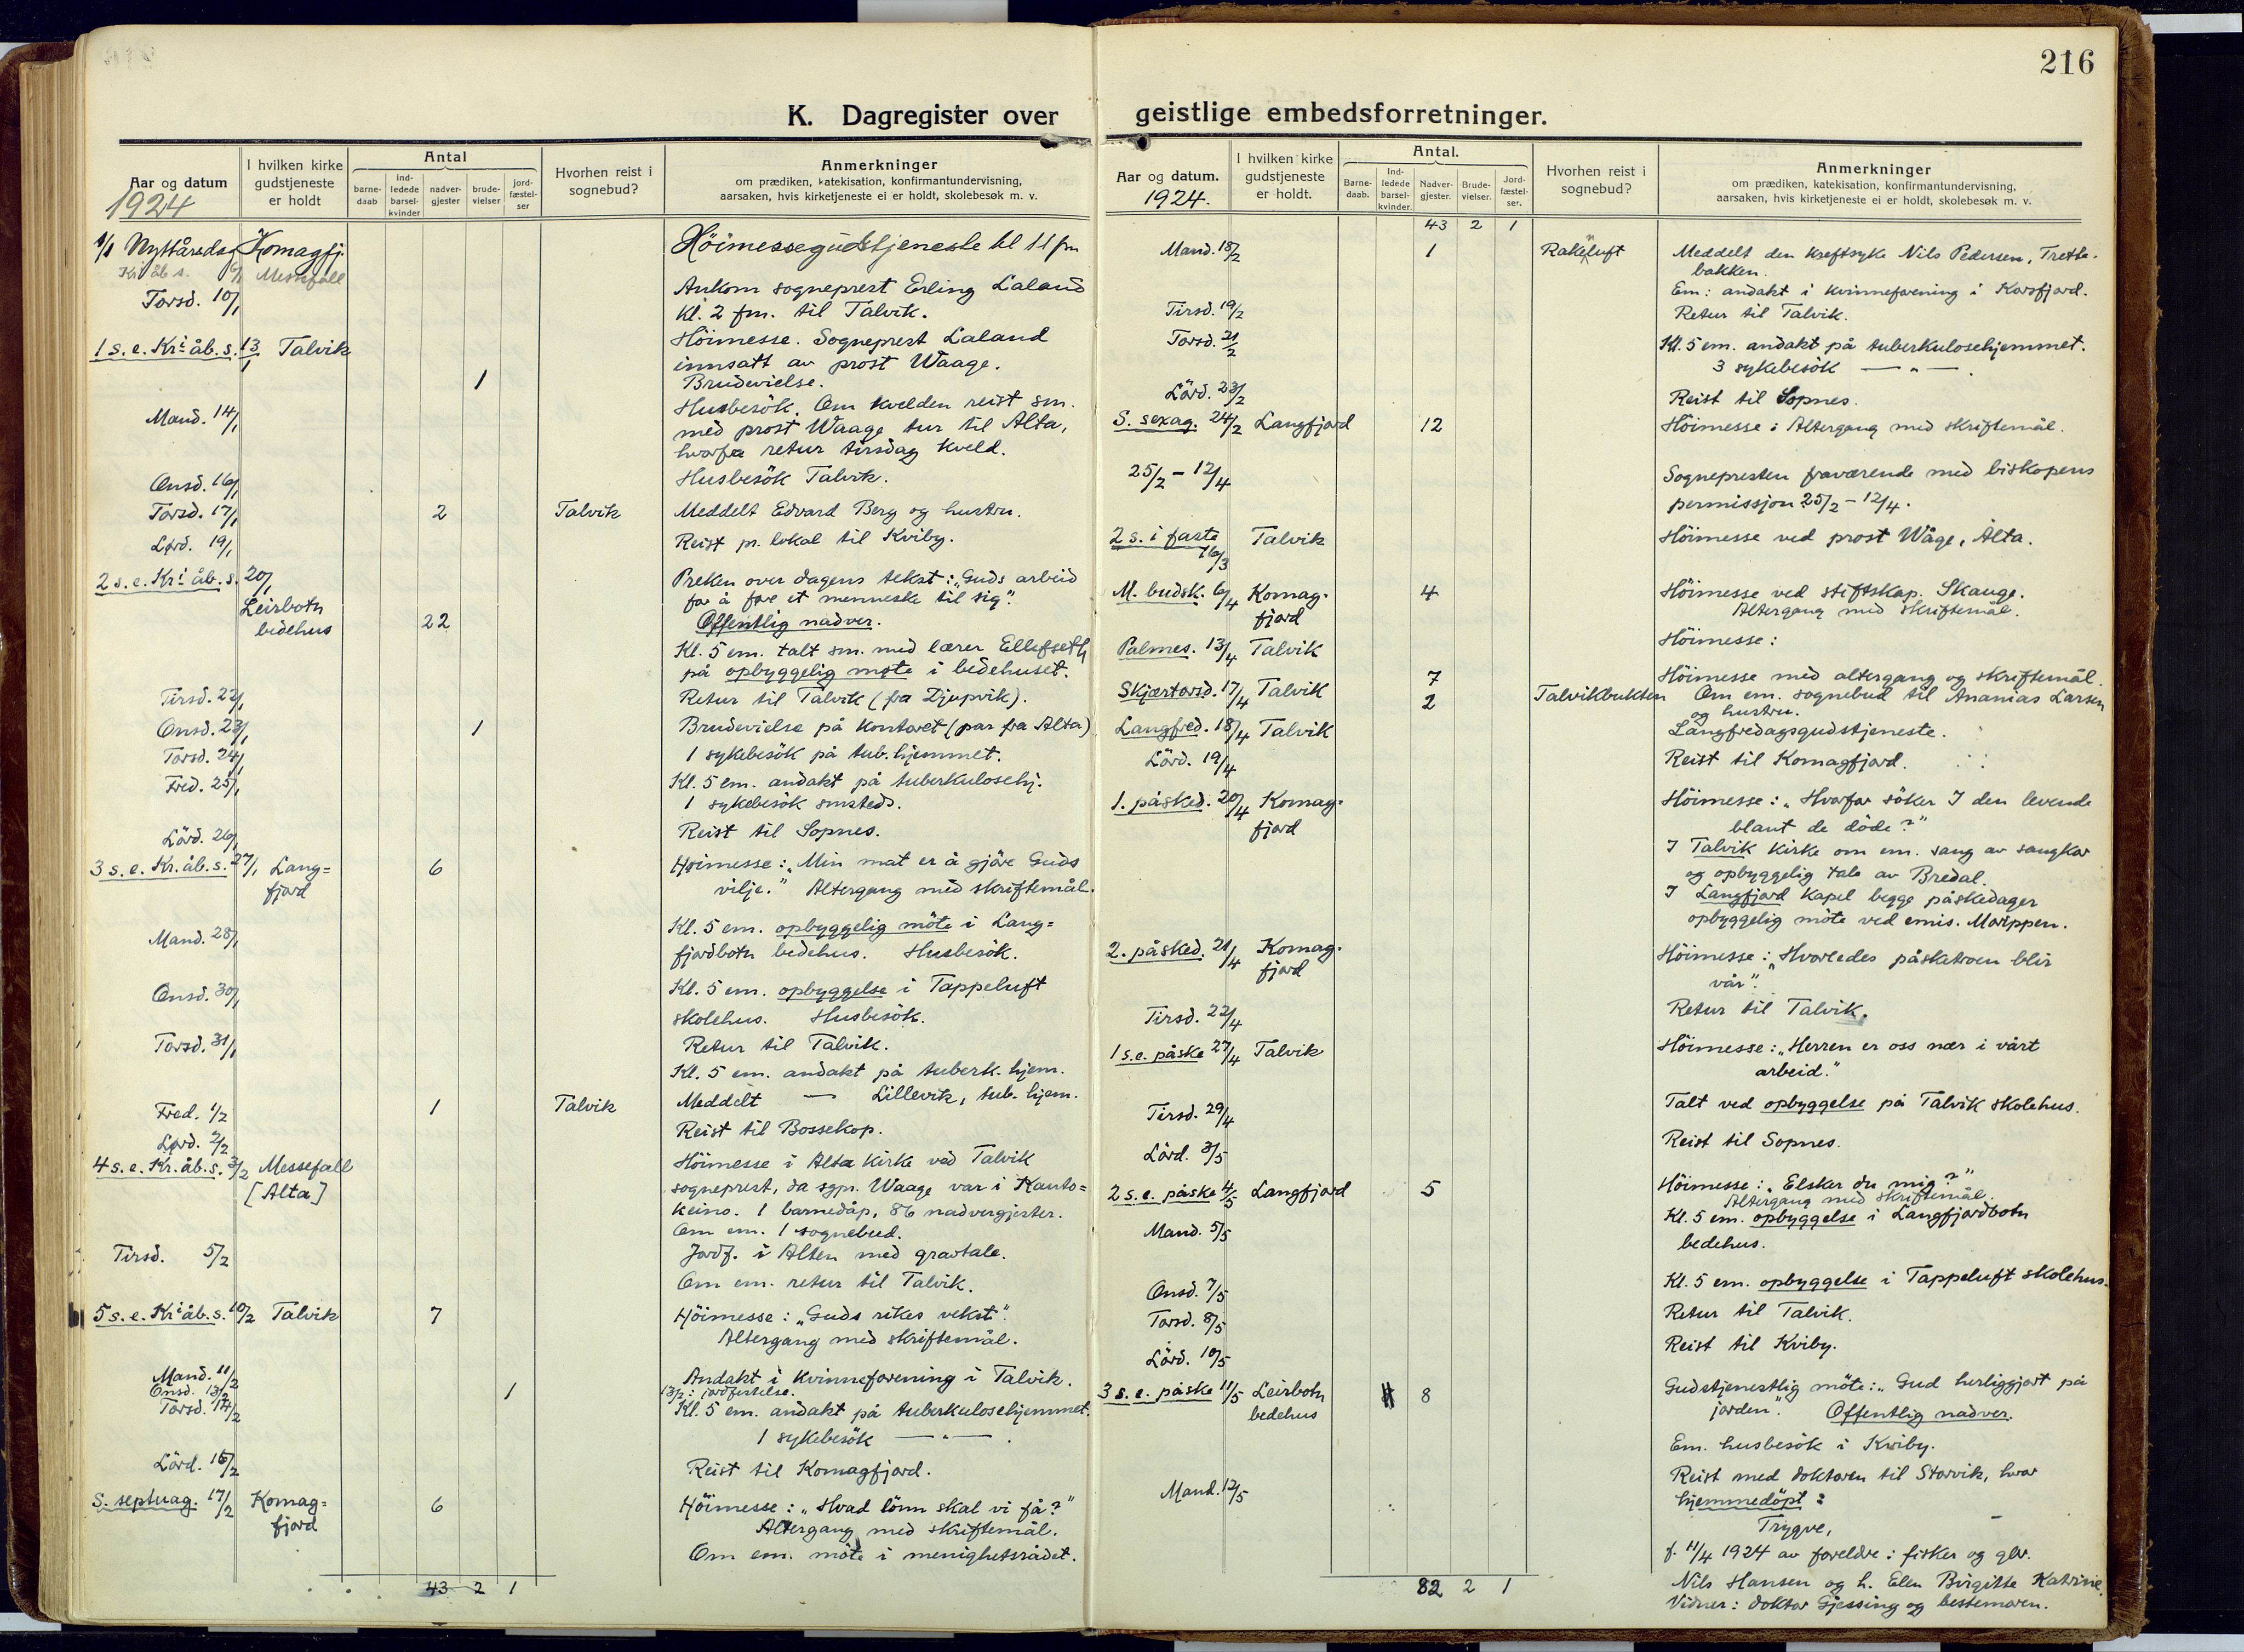 216
K. Dagregister over geistlige embedsforretninger.
Aar og datum
1924
I hvilken kirke gudstjeneste er holdt
Antal
barnedaab
indledede barselkvinder
nadvergjester
brudevielser
jordfæstelser
Hvorhen reist i sognebud?
Anmerkninger
om prædiken, katekisation, konfirmantundervisning,
aarsaken, hvis kirketjeneste ei er holdt, skolebesøk m. v.
1/1 Nyttårsdag Komagfj. Höimessegudstjeneste kl 11 fm
Kr. åb s. 6/1 Messefall
Torsd. 10/1 Ankom sogneprest Erling Laland
Kl. 2 fm. til Talvik.
1 s. e. Kri åb. s. 13/1 Talvik Höimesse. Sogneprest Laland
innsatt av prost Waage.
1 Brudevielse.
Mand. 14/1 Husbesök. Om kvelden reist sm.
med prost Waage tur til Alta,
hvorfra retur tirsdag kveld.
Onsd. 16/1 Husbesök Talvik.
Torsd. 17/1 2 Talvik Meddelt Edvard Berg og hustru.
Lørd. 19/1 Reist pr. lokal til Kviby.
2 s. e. Kri åb. s. 20/1 Preken over dagens tekst: „Guds arbeid
Leirbotn for å føre et menneske til sig".
bedehus 22 Offentlig nadver.
Kl. 5 em. talt sm. med lærer Ellefseth
på opbyggelig møte i bedehuset.
Tirsd. 22/1 Retur til Talvik (fra Djupvik).
Onsd. 23/1 1 Brudevielse på kontoret (par fra Alta)
Torsd. 24/1 1 sykebesök på tub. hjemmet.
Fred. 25/1 Kl. 5 em. andakt på tuberkulosehj.
1 sykebesök smsteds.
Lörd. 26/1 Reist til Sopnes.
3 s. e. Kr. åb. s. 27/1 Lang= 6 Höimesse: „Min mat er å gjöre Guds
fjord vilje." Altergang med skriftemål.
Mand. 28/1 Kl. 5 em. opbyggelig möte i Lang=
fjordbotn bedehus. Husbesök.
Onsd. 30/1 Kl. 5 em. opbyggelse i Tappeluft
skolehus. Husbesök.
Torsd. 31/1 Retur til Talvik.
Kl. 5 em. andakt på tuberk. hjem.
Fred. 1/2 1 Talvik Meddelt — Lillevik, tub. hjem.
Lørd. 2/2 Reist til Bossekop.
4 s. e. Kr. åb. s. 3/2 Messefall Höimesse i Alta kirke ved Talvik
[Alta] sogneprest, da sgpr. Waage var i Kauto=
keino. 1 barnedåp, 86 nadvergjester.
Om em. 1 sognebud.
Tirsd. 5/2 Jordf. i Alten med gravtale.
Om em. retur til Talvik.
5 s. e. Kri åb. s. 10/2 Talvik 7 Höimesse: „Guds rikes vekst".
Altergang med skriftemål.
Mand. 11/2 Andakt i kvinneforening i Talvik.
Onsd. 13/2 1 13/2: jordfestelse.
Torsd. 14/2 Kl. 5 em. andakt på tuberkulosehjemmet.
1 sykebesök — „ — .
Lörd. 16/2 Reist til Komagfjord.
S. septuag. 17/2 Komag= 6 Höimesse: „Hvad lönn skal vi få?"
fjord Altergang med skriftemål.
Om em. möte i menighetsrådet.
43 2 1
Aar og datum.
1924.
I hvilken kirke gudstjeneste er holdt.
Antal.
Barnedaab.
Indledede barselkvinder.
Nadvergjester.
Brudevielser.
Jordfæstelser.
Hvorhen reist i sognebud?
Anmerkninger
om prædiken, katekisation, konfirmantundervisning,
aarsaken, hvis kirketjeneste ei er holdt, skolebesøk m. v.
43 2 1
Mand. 18/2 1 Rakeluft Meddelt den kreftsyke Nils Pedersen, Trette-
bakken.
Em: andakt i kvinneforening i Korsfjord.
Tirsd. 19/2 Retur til Talvik.
Torsd. 21/2 Kl. 5 em. andakt på tuberkulosehjemmet.
3 sykebesök — „ — .
Lörd. 23/2 Reist til Sopnes.
S. sexag. 24/2 Langfjord 12 Höimesse: Altergang med skriftemål.
25/2 – 12/4 Sognepresten fraværende med biskopens
permissjon 25/2 – 12/4.
2 s. i faste Talvik Höimesse ved prost Wåge, Alta.
16/3
M. budsk. 6/4 Komag- 4 Höimesse ved stiftskap. Skauge.
fjord Altergang med skriftemål.
Palmes. 13/4 Talvik Höimesse:
7 Höimesse med altergang og skriftemål.
Skjærtorsd. 17/4 Talvik 2 Talvikbukten Om em. sognebud til Ananias Larsen
og hustru.
Langfred. 18/4 Talvik Langfredagsgudstjeneste.
Lörd. 19/4 Reist til Komagfjord.
1. påsked. 20/4 Komag= Höimesse: „Hvorfor söker I den levende
fjord blant de döde?"
I Talvik kirke om em. sang av sangkor
og opbyggelig tale av Bredal.
I Langfjord kapel begge påskedager
opbyggelig möte ved emis. Morippen.
2. påsked. 21/4 Komag- Höimesse: „Hvorledes påsketroen blir
fjord vår".
Tirsd. 22/4 Retur til Talvik.
1 s. e. påske 27/4 Talvik Höimesse: „Herren er oss nær i vårt
arbeid."
Tirsd. 29/4 Talt ved opbyggelse på Talvik skolehus.
Lörd. 3/5 Reist til Sopnes.
2 s. e. påske 4/5 Langfjord 5 Höimesse: „Elsker du mig?"
Altergang med skriftemål.
Kl. 5 em. opbyggelse i Langfjordbotn
Mand. 5/5 bedehus.
Onsd. 7/5 Kl. 5 em. opbyggelse i Tappeluft skolehus.
Torsd. 8/5 Retur til Talvik.
Lörd. 10/5 Reist til Kviby.
3 s. e. påske 11/5 Leirbotn 8 Gudstjenestlig möte: „Gud herliggjort på
bedehus jorden". Offentlig nadver.
Em. husbesök i Kviby.
Mand. 12/5 Reist med doktoren til Storvik, hvor
hjemmedöpt:
Trygve,
f. 11/4 1924 av foreldre: fisker og gbr.
Nils Hansen og h. Elen Birgitte Katrine.
Vidner: doktor Gjessing og bestemoren.
82 2 1